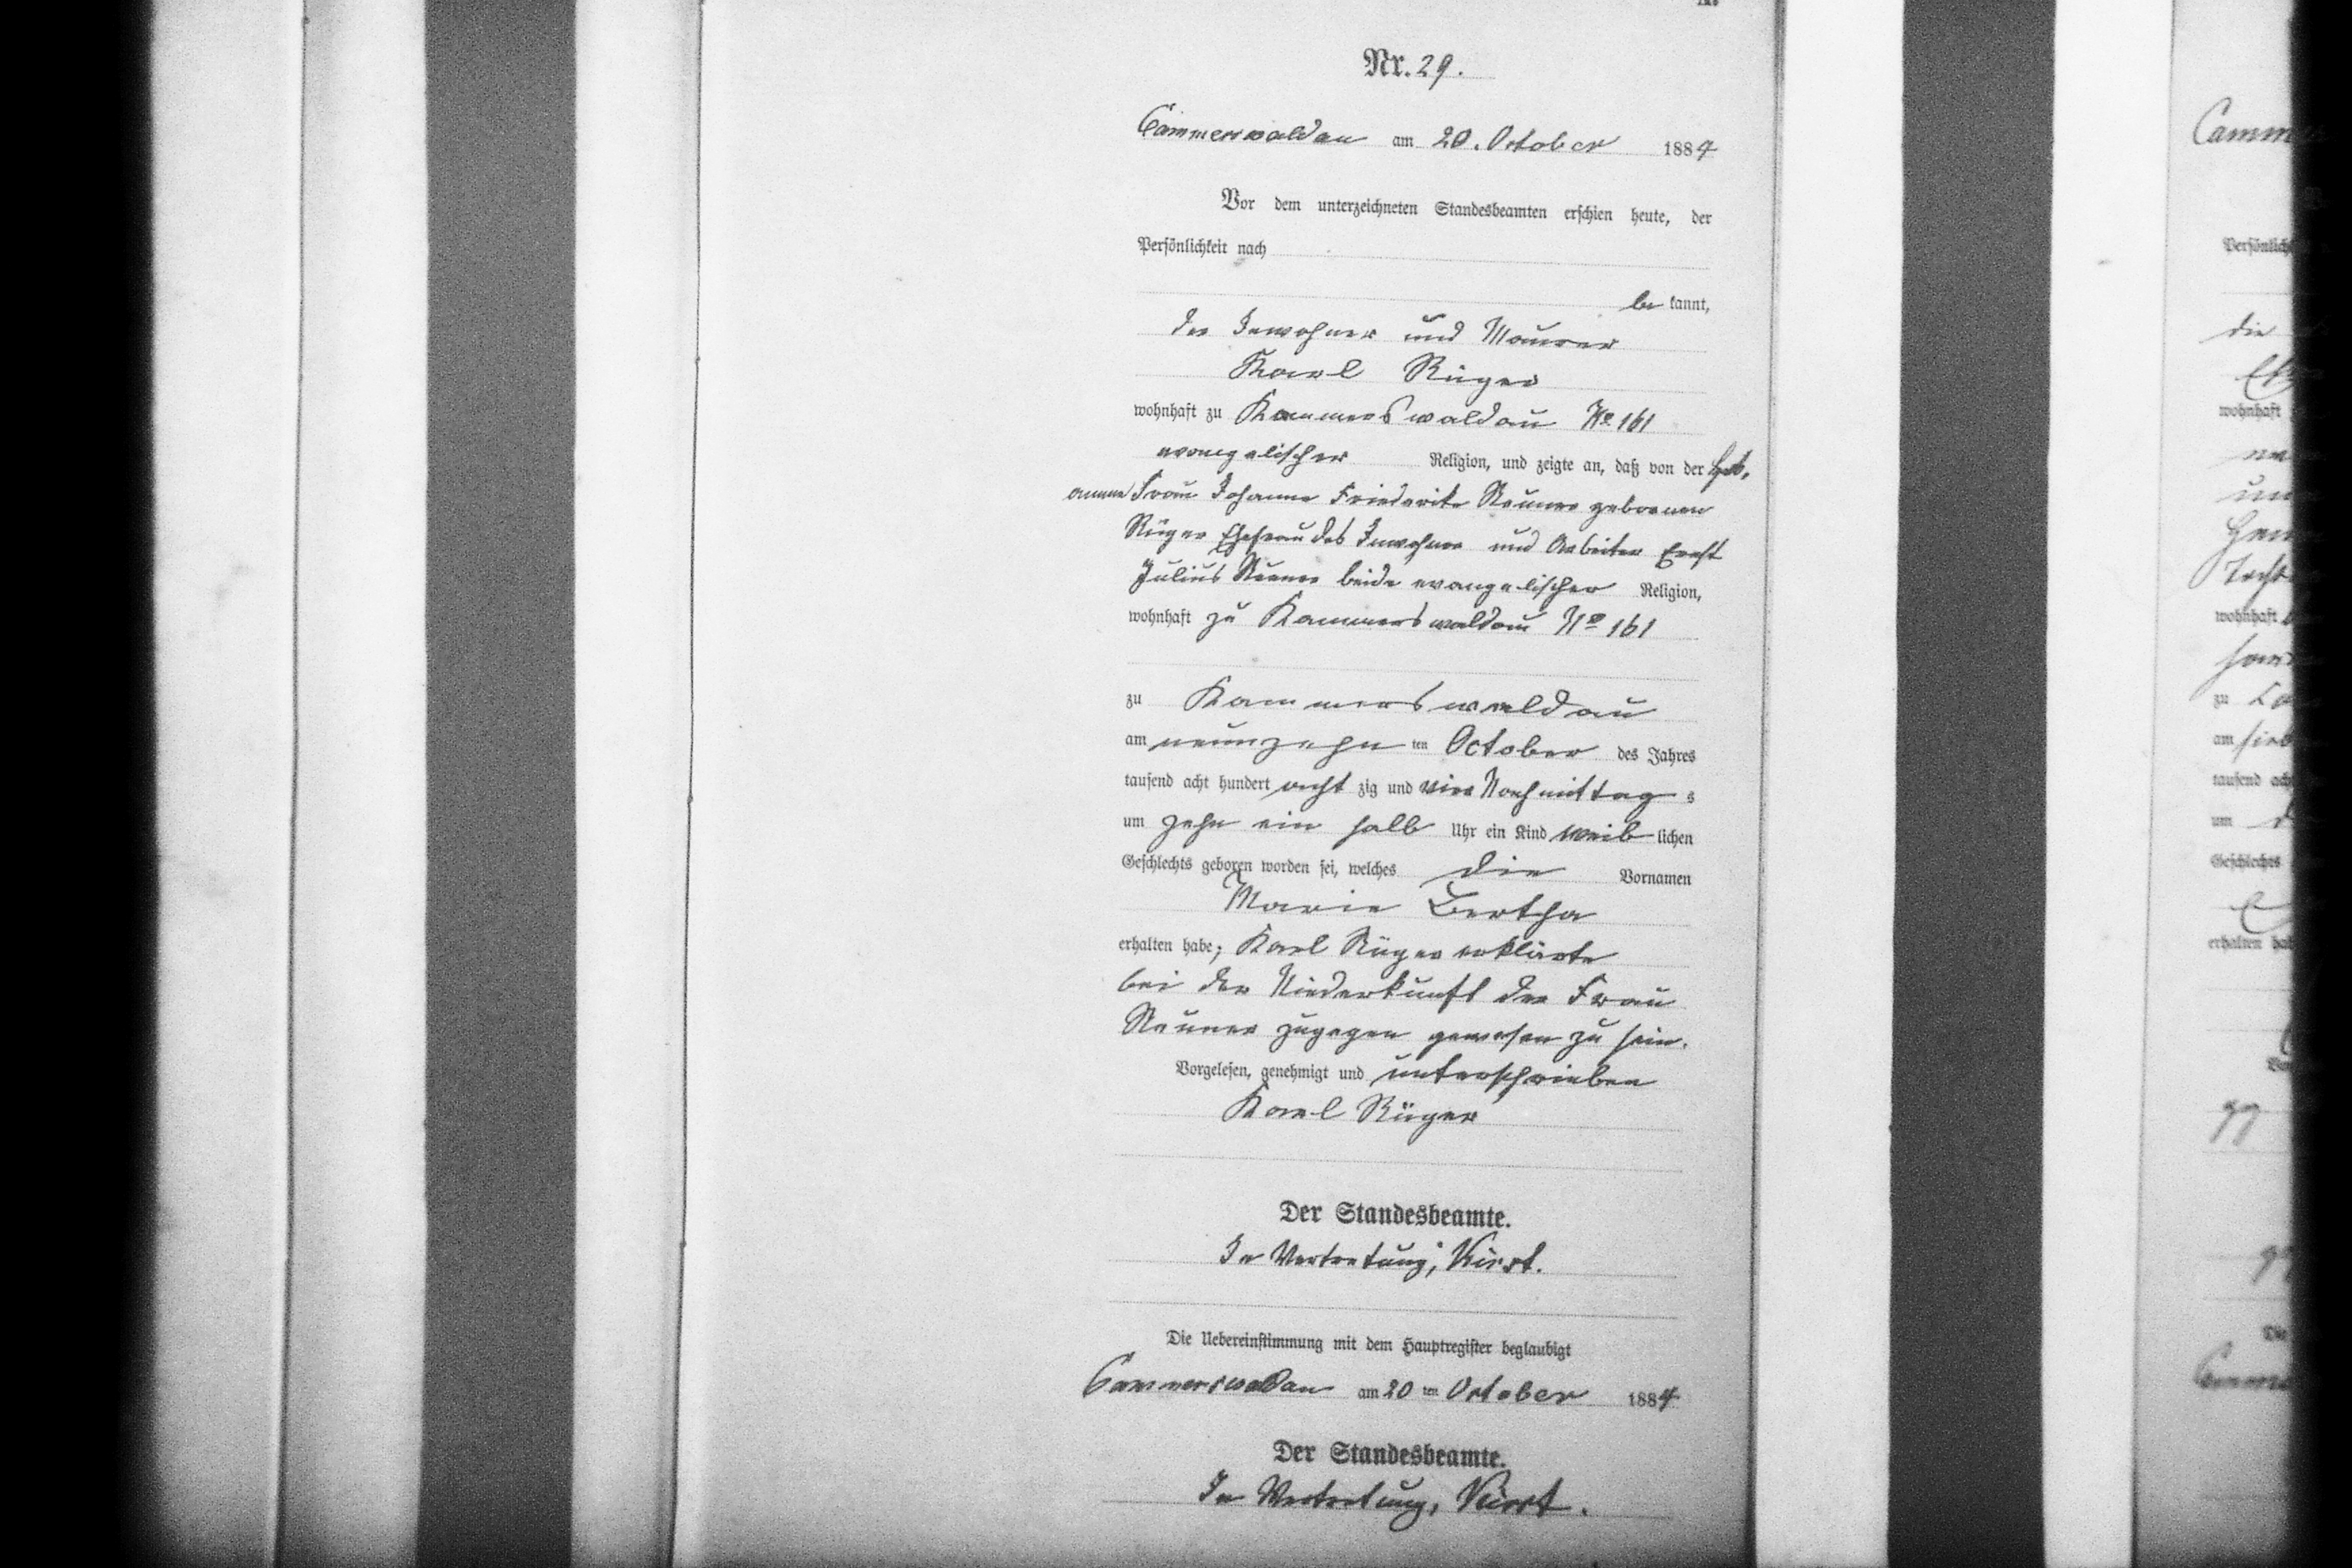 Nr. 29.
Cammerswaldau am 20. October 1884
Vor dem unterzeichneten Standesbeamten erschien heute, der
Persönlichkeit nach
be kannt,
der Inwohner und Maurer
Karl Rüger
wohnhaft zu Kammerswaldau No 161
evangelischer Religion, und zeigte an, daß von der Heb,
amme Frau Johanne Friederike geborenen
Rüger Ehefrau des Inwohner und Arbeiter Ernst
Julius beide evangelischer Religion,
wohnhaft zu Kammerswaldau No 161
zu Kammerswaldau
am neunzehn ten October des Jahres
tausend acht hundert acht zig und vier Nachmittag s
um zehn ein halb Uhr ein Kind weib lichen
Geschlechts geboren worden sei, welches die Vornamen
Marie Bertha
erhalten habe; Karl Rüger erklärte
bei der Niederkunft der Frau
zugegen gewesen zu sein.
Vorgelesen, genehmigt und unterschrieben
Karl Rüger
Der Standesbeamte.
In Vertretung,
Die Uebereinstimmung mit dem Hauptregister beglaubigt
Cammerswaldau am 20 ten October 1884
Der Standesbeamte.
In Vertretung,